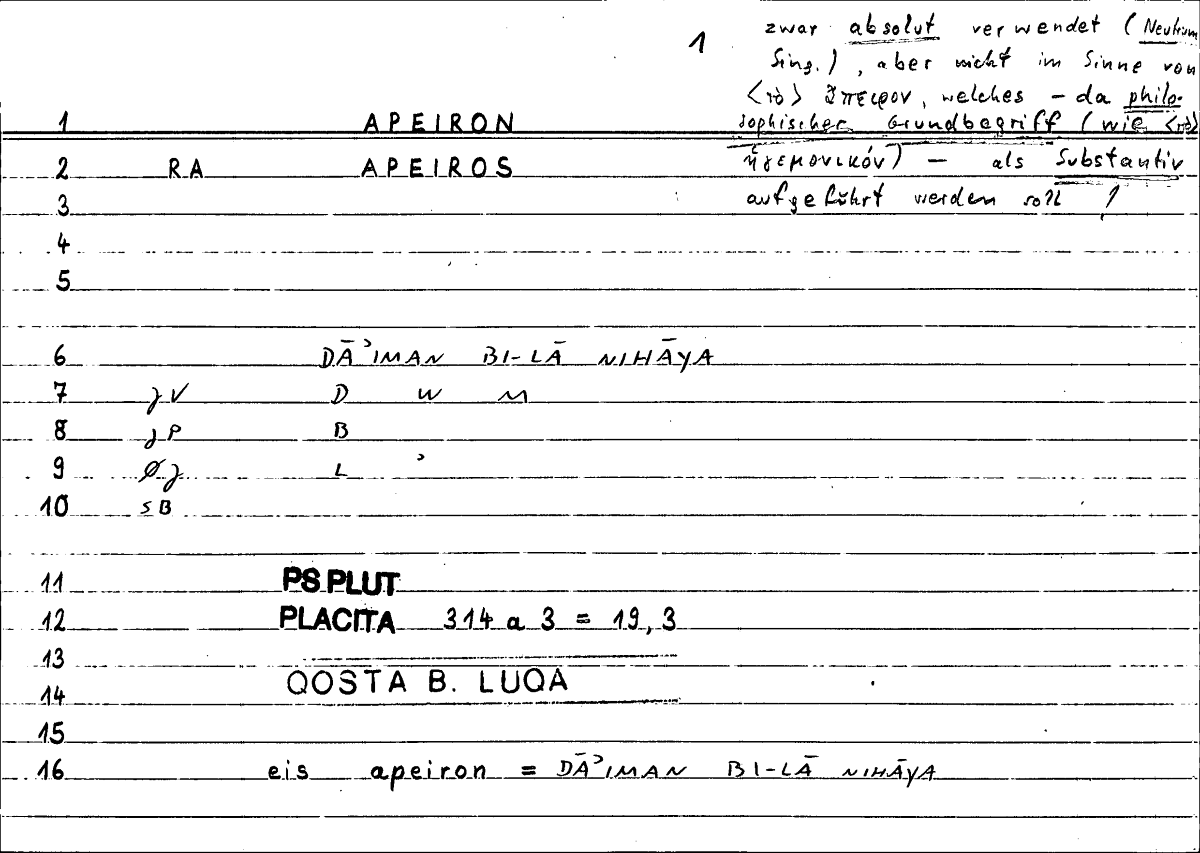 1 zwar absolut verwendet (Neutrum
Sing.), aber nicht im Sinne von
<τὸ> ἄπειρον, welches – da philo-
sophischer Grundbegriff (wie <τὸ>
ἡγεμονικόν) – als Substantiv
aufgeführt werden soll !
1 APEIRON
2 RA APEIROS
3
4
5
6 DĀʾIMAN BI-LĀ NIHĀYA
7 gV D W M
8 gP B
9 Øg L ʾ
10 SB
11 PS.PLUT
12 PLACITA 314 a 3 = 19,3
13
14 QOSTA B. LUQA
15
16 eis apeiron = DĀʾIMAN BI-LĀ NIHĀYA